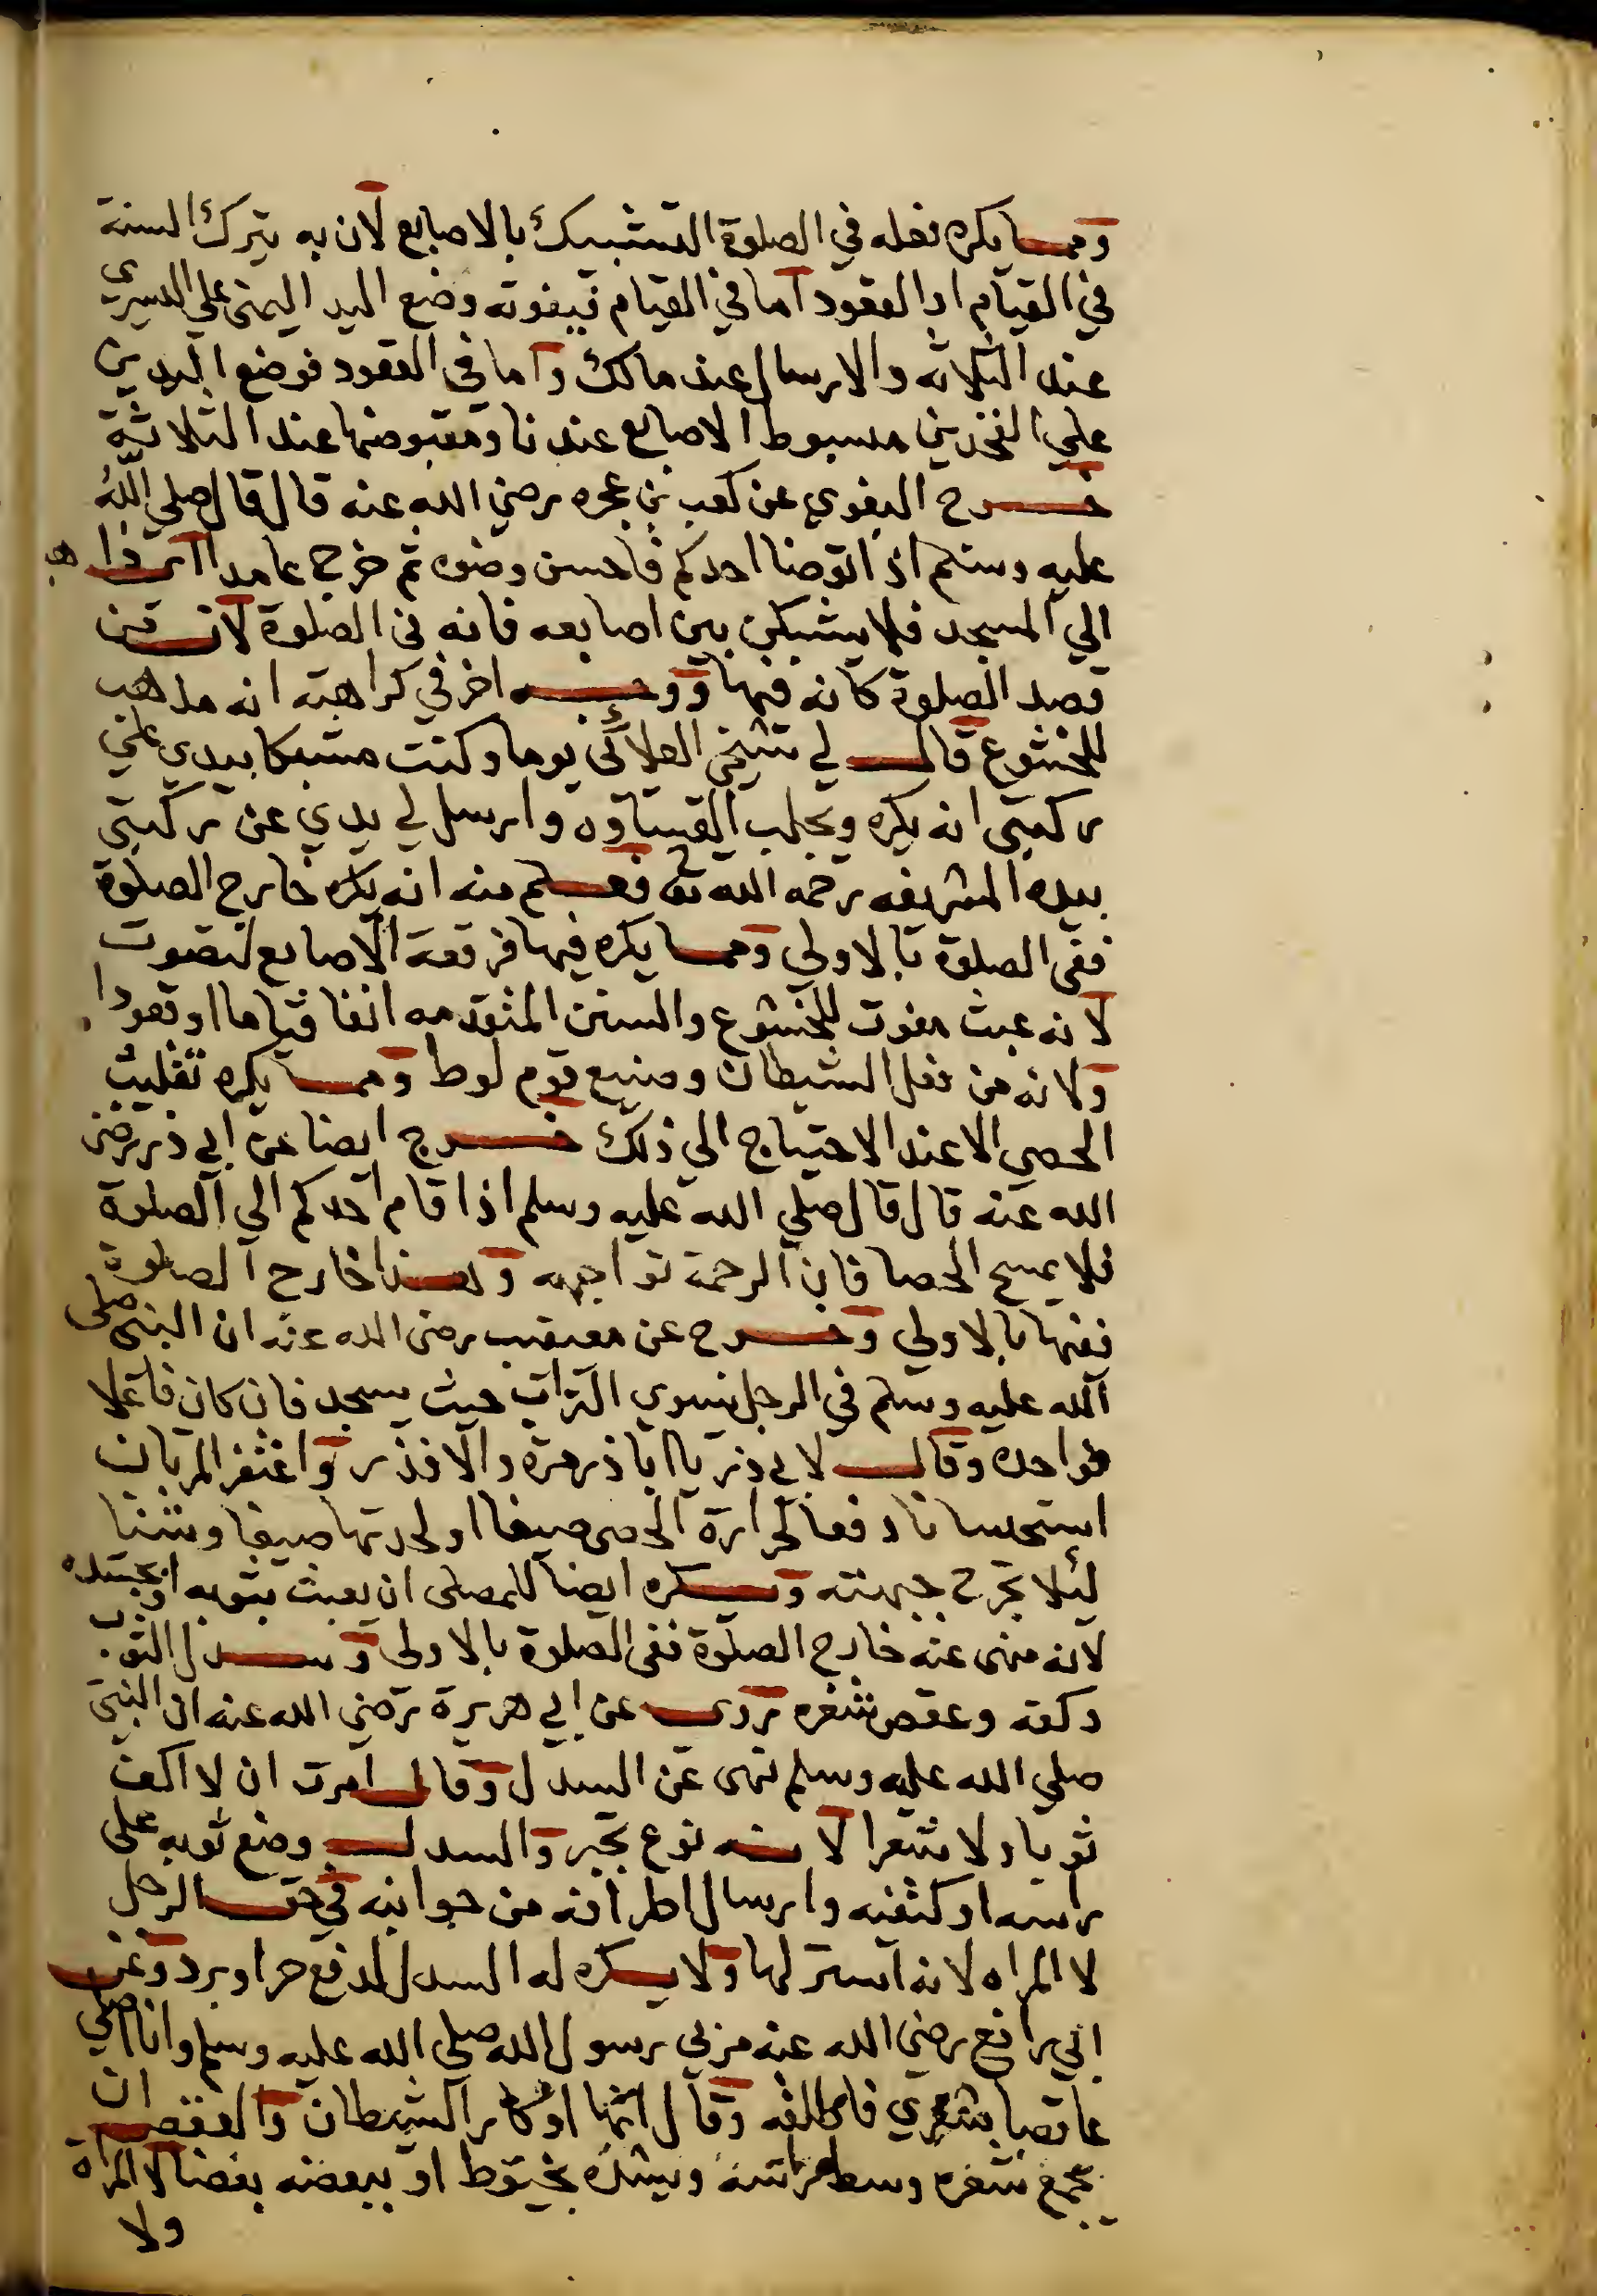 ومما يكره فعله في الصلوة التشبيك بالاصابع لان به يترك السنة
في القيام او القعود اما في القيام فيفوته وضع اليد اليمنى علي اليسري
عند الثلاثه والارسال عند مالك واما في القعود فوضع اليدين
علي الفخذين مبسوط الاصابع عندنا ومقبوضها عند الثلاثة
خرج البغوي عن كعب بن عجره رضي الله عنه قال قال صلي الله
عليه وسلم اذا توضا احدكم فاحسن وضوه ثم خرج عامدا
الي المسجد فلا يشبكن بين اصابعه فانه في الصلوة لان من
قصد الصلوة كانه فيها ووجه اخر في كراهته انه مذهب
للخشوع قال لي شيخي العلائي يوما وكنت مشبكا بيدي علي
ركبتي انه يكره ويجلب القساوه وارسل لي يدي عن ركبتي
بيده الشريفه رحمه الله تعا فعلم منه انه يكره خارج الصلوة
ففي الصلوة بالاولي ومما يكره فيها فرقعة الاصابع لتصوت
لانه عبث مفوت للخشوع والسنن المتقدمه انفا قياما او قعودا
ولانه من فعل الشيطان وصنيع قوم لوط ومما يكره تقليب
الحصي الا عند الاحتياج الي ذلك خرج ايضا عن ابي ذر رضي
الله عنه قال قال صلي الله عليه وسلم اذا قام احدكم الي الصلوة
فلا يمسح الحصا فان الرحمة تواجهه وهذا خارج الصلوة
ففيها بالاولي وخرج عن معيقيب رضي الله عنه ان النبي صلى
الله عليه وسلم في الرجل يسوي التراب حيث يسجد فان كان فاعلا
فواحده وقال لابي ذر يا ابا ذر مرة والا فذر واغتفر المرتان
استحسانا دفعا لحرارة الحصى صيفا او لحدتها صيفا وشتا
لئلا تجرح جبهته ويكره ايضا للمصلى ان يعبث بثوبه او بجسده
لانه منهى عنه خارج الصلوة ففى الصلوة بالاولى وسدل الثوب
وكفه وعقص شعره روى عن ابي هريرة رضي الله عنه ان النبي
صلي الله عليه وسلم نهى عن السدل وقال امرت ان لا اكف
ثوبا ولا شعرا لانه نوع تجبر والسدل وضع ثوبه على
راسه او كتفيه وارسال اطرافه من جوانبه في حق الرجل
لا المراه لانه استر لها ولا يكره له السدل لدفع حر او برد وعن
ابي رافع رضي الله عنه مر بي رسول الله صلي الله عليه وسلم وانا اصلي
عاقصا شعري فاطلقه وقال انها اوكار الشيطان والعقص ان
يجمع شعره وسط راسه ويشده بخيوط او ببعضه بعضا لا المراة
ولا